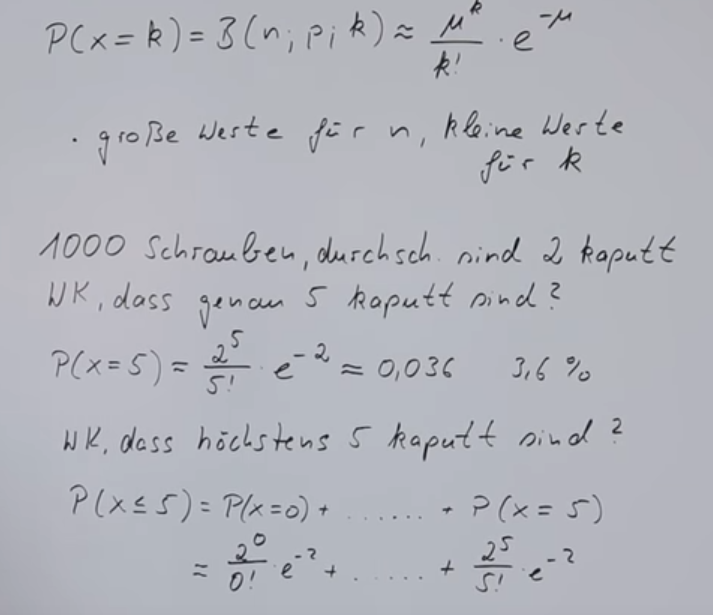 P(x = k) = B(n; p; k) ≈ μ^k/k! · e^-μ
· große Werte für n, kleine Werte
für k
1000 Schrauben, durchsch. sind 2 kaputt
WK, dass genau 5 kaputt sind?
P(x = 5) = 2^5/5! · e^-2 ≈ 0,036 3,6 %
WK, dass höchstens 5 kaputt sind?
P(x ≤ 5) = P(x = 0) + ...... + P(x = 5)
= 2^0/0! · e^-2 + ...... + 2^5/5! · e^-2